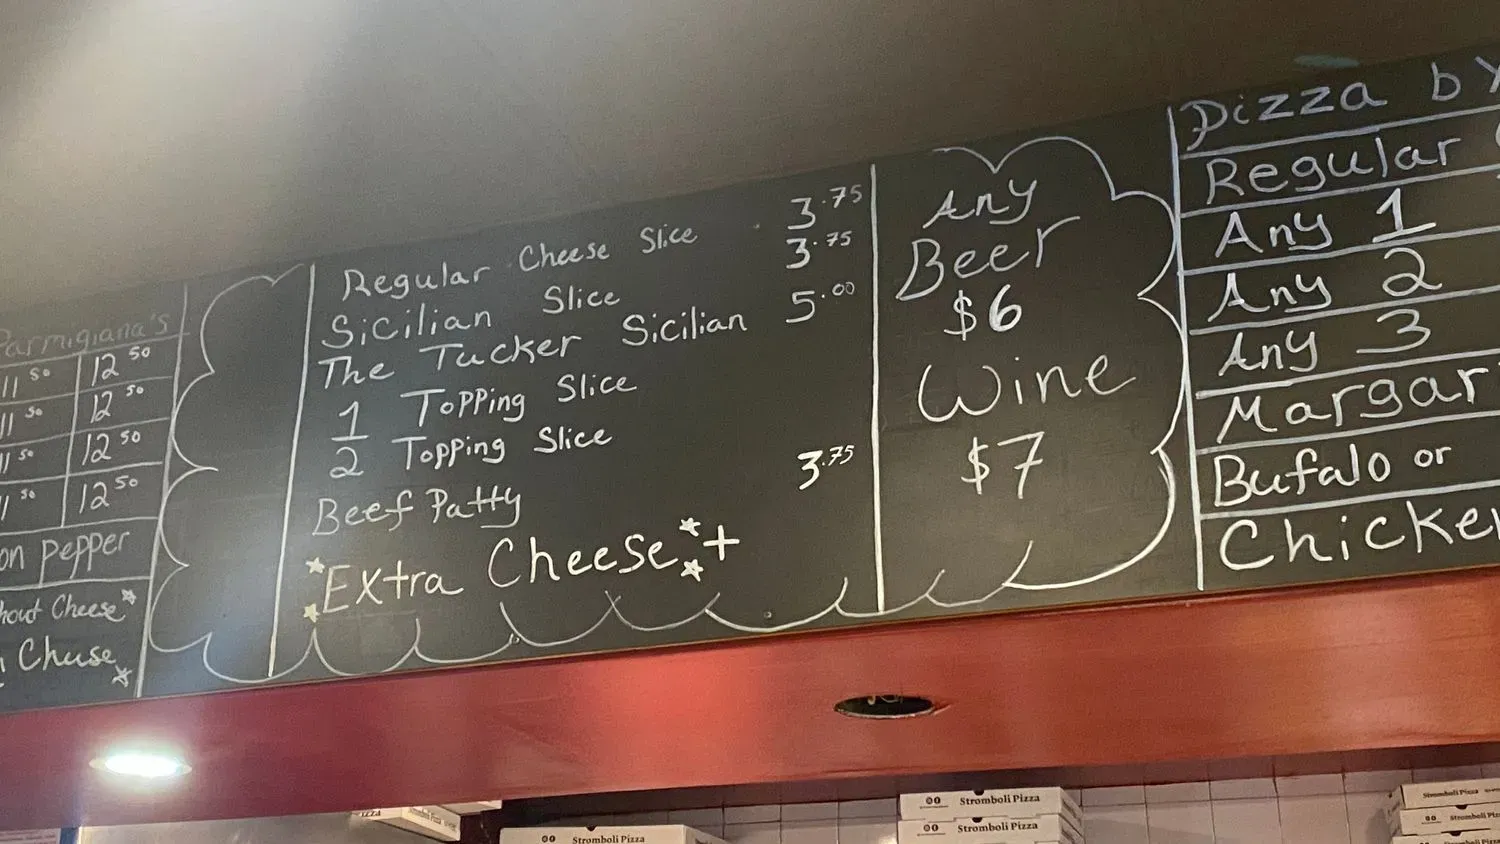 Parmigiana's
11 50 12 50
11 50 12 50
11 50 12 50
11 50 12 50
on Pepper
hout Cheese
Chuse
Regular Cheese Slice 3.75
Sicilian Slice 3.75
The Tucker Sicilian 5.00
1 Topping Slice
2 Topping Slice
Beef Patty 3.75
Extra Cheese +
Any
Beer
$6
Wine
$7
Pizza by
Regular
Any 1
Any 2
Any 3
Margar
Bufalo or
Chicken
Stromboli Pizza
Stromboli Pizza
Stromboli Pizza
Stromboli Pizza
Stromboli Pizza